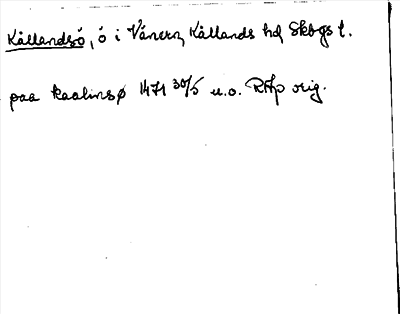 Kållandsö, ö i Vänern, Kållands hd Skbgs l.
paa kaalinsø 1471 30/5 u.o. RAp orig.